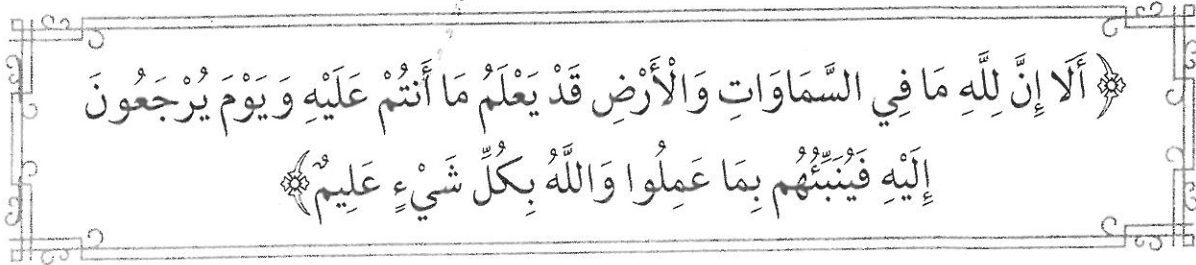 ﴿أَلَا إِنَّ لِلَّهِ مَا فِي السَّمَاوَاتِ وَالْأَرْضِ قَدْ يَعْلَمُ مَا أَنتُمْ عَلَيْهِ وَيَوْمَ يُرْجَعُونَ
إِلَيْهِ فَيُنَبِّئُهُم بِمَا عَمِلُوا وَاللَّهُ بِكُلِّ شَيْءٍ عَلِيمٌ﴾